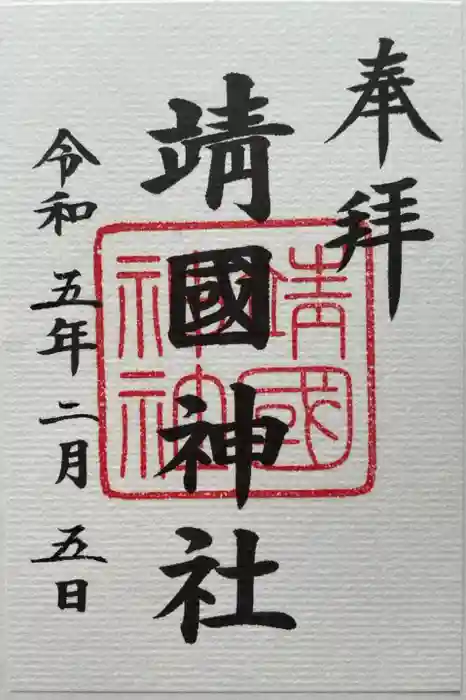 奉拝
靖國神社
靖國
神社
令和五年二月五日